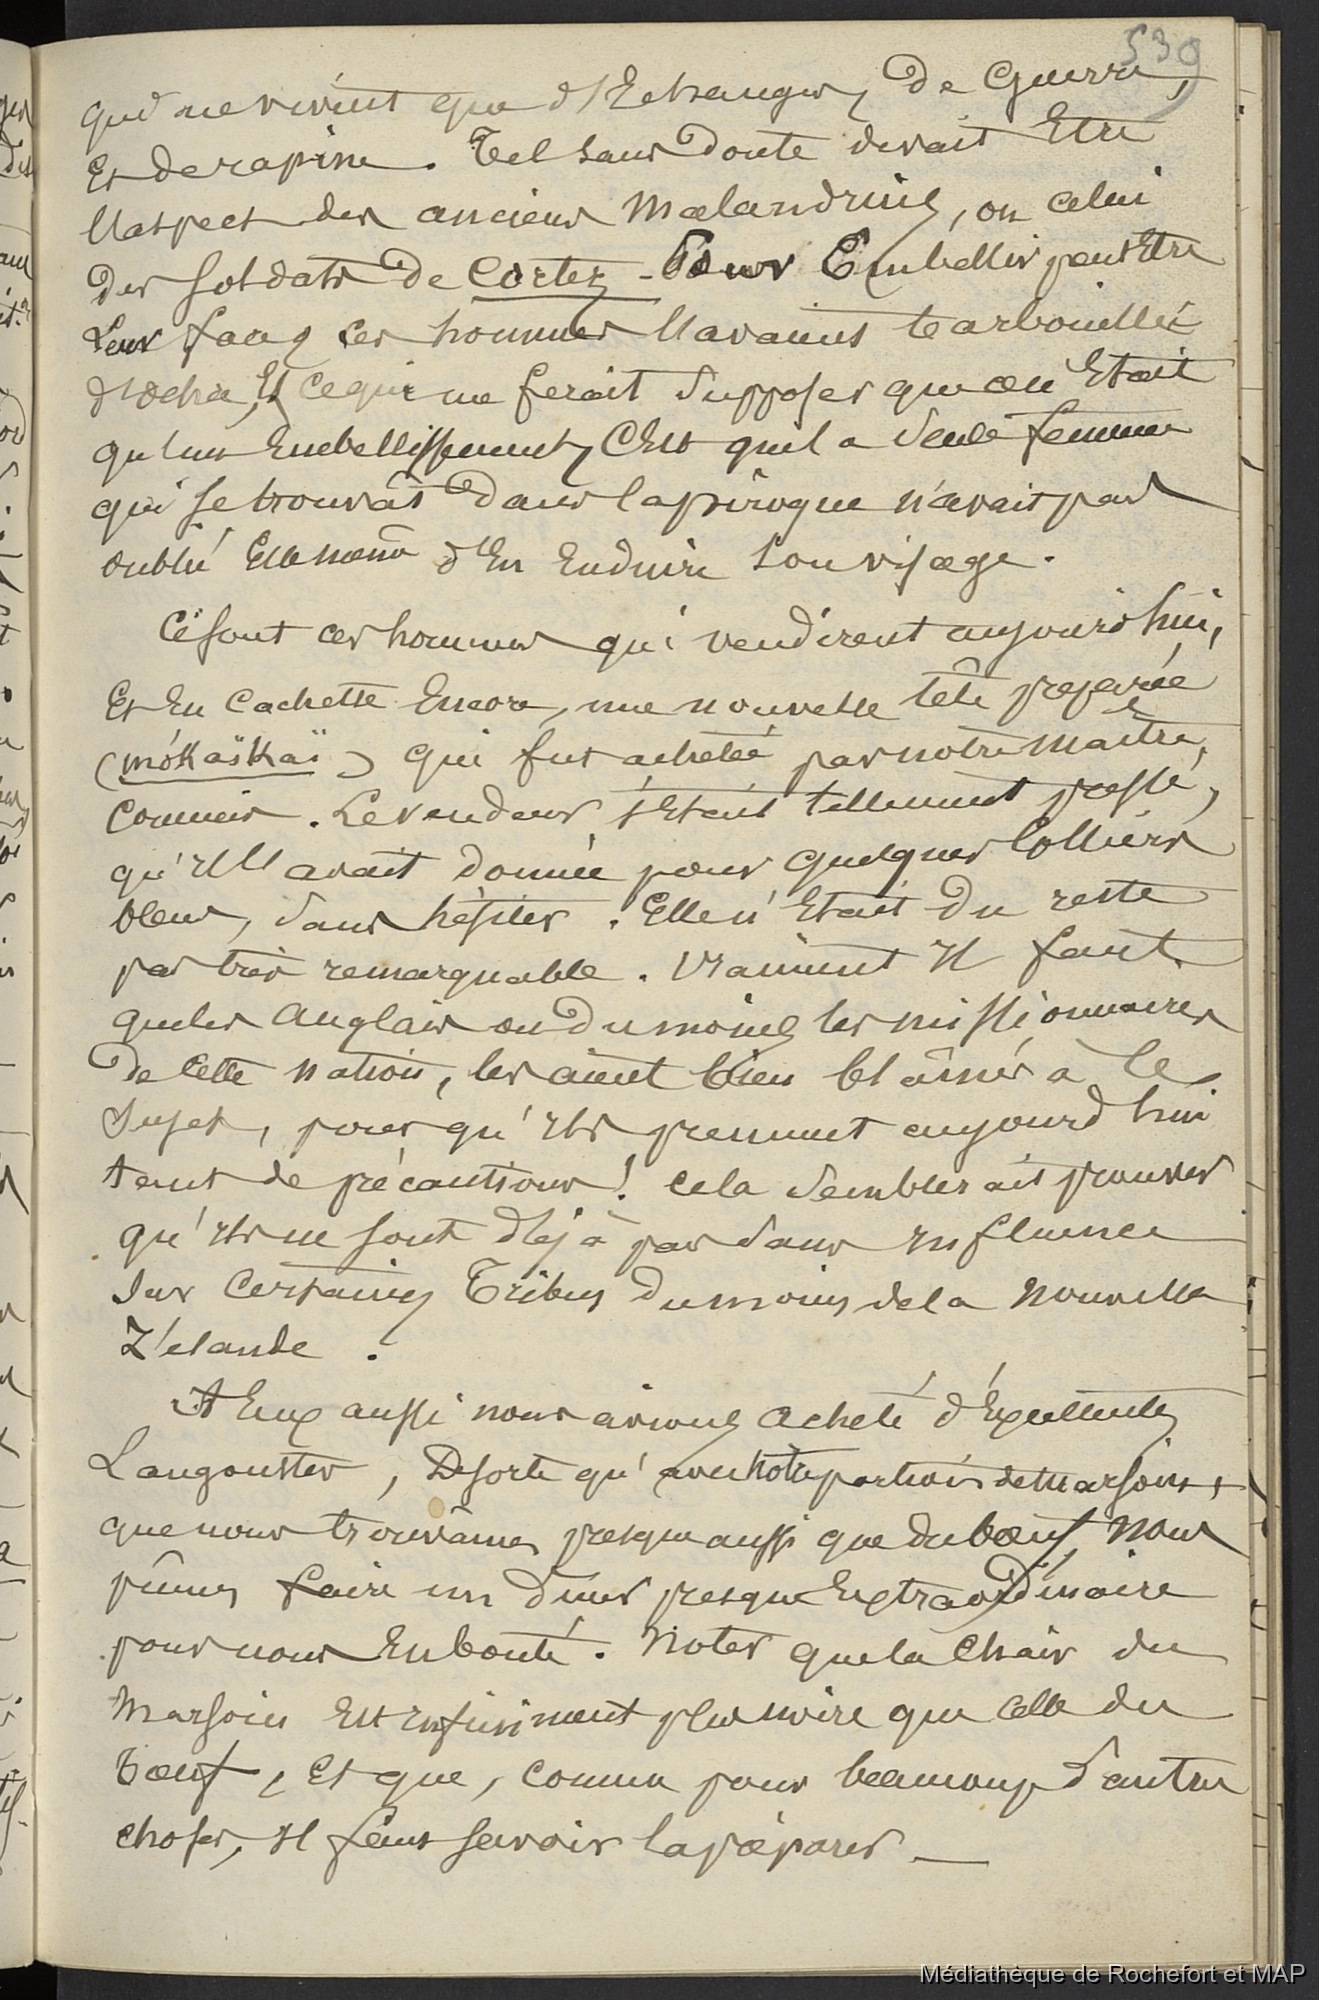 539
qui ne vivent que d'Echanges, De Guerre,
Et de rapine. Tel sans Doute devait Etre
l'aspect des anciens Malandrins, ou celui
des soldats De Cortez - Pour Embellir peut Etre
Leur face ces hommes l'avaient barbouillée
d'ocre, Et ce qui me ferait supposer que ce n'Etait
qu'un Embellissement, C'Est que la seule femme
qui se trouvât Dans la pirogue n'avait pas
oublié Elle même d'En Enduire son visage.
Ce sont ces hommes qui vendirent aujourd'hui,
Et En Cachette Encore, une nouvelle tête préparée
(mókaïkaï) qui fut achetée par notre Maître
Commis. Le vendeur s'Etait tellement pressé,
qu'Il l'avait donnée pour quelques Colliers
bleus, sans hésiter. Elle n'Etait Du reste
pas très remarquable. Vraiment Il faut
que les Anglais ou Du moins les missionnaires
De Cette nation, les aient bien blâmés à Ce
Sujet, pour qu'Ils prennent aujourd'hui
tant de précautions! Cela Semblerait prouver
qu'Ils ne sont déjà pas sans Influence
Sur Certaines Tribus Du moins de la Nouvelle
Zélande.
A Eux aussi nous avions acheté d'Excellentes
Langoustes, De sorte qu'avec notre portion de Marsouin,
que nous trouvâmes presque aussi que du boeuf, nous
pûmes faire un dîner presque Extraordinaire
pour nous En bonté. Notez que la Chair du
Marsouin Est Infiniment plus noire que Celle du
Boeuf, Et que, comme pour beaucoup d'autres
choses, Il faut savoir la préparer —
Médiathèque de Rochefort et MAP